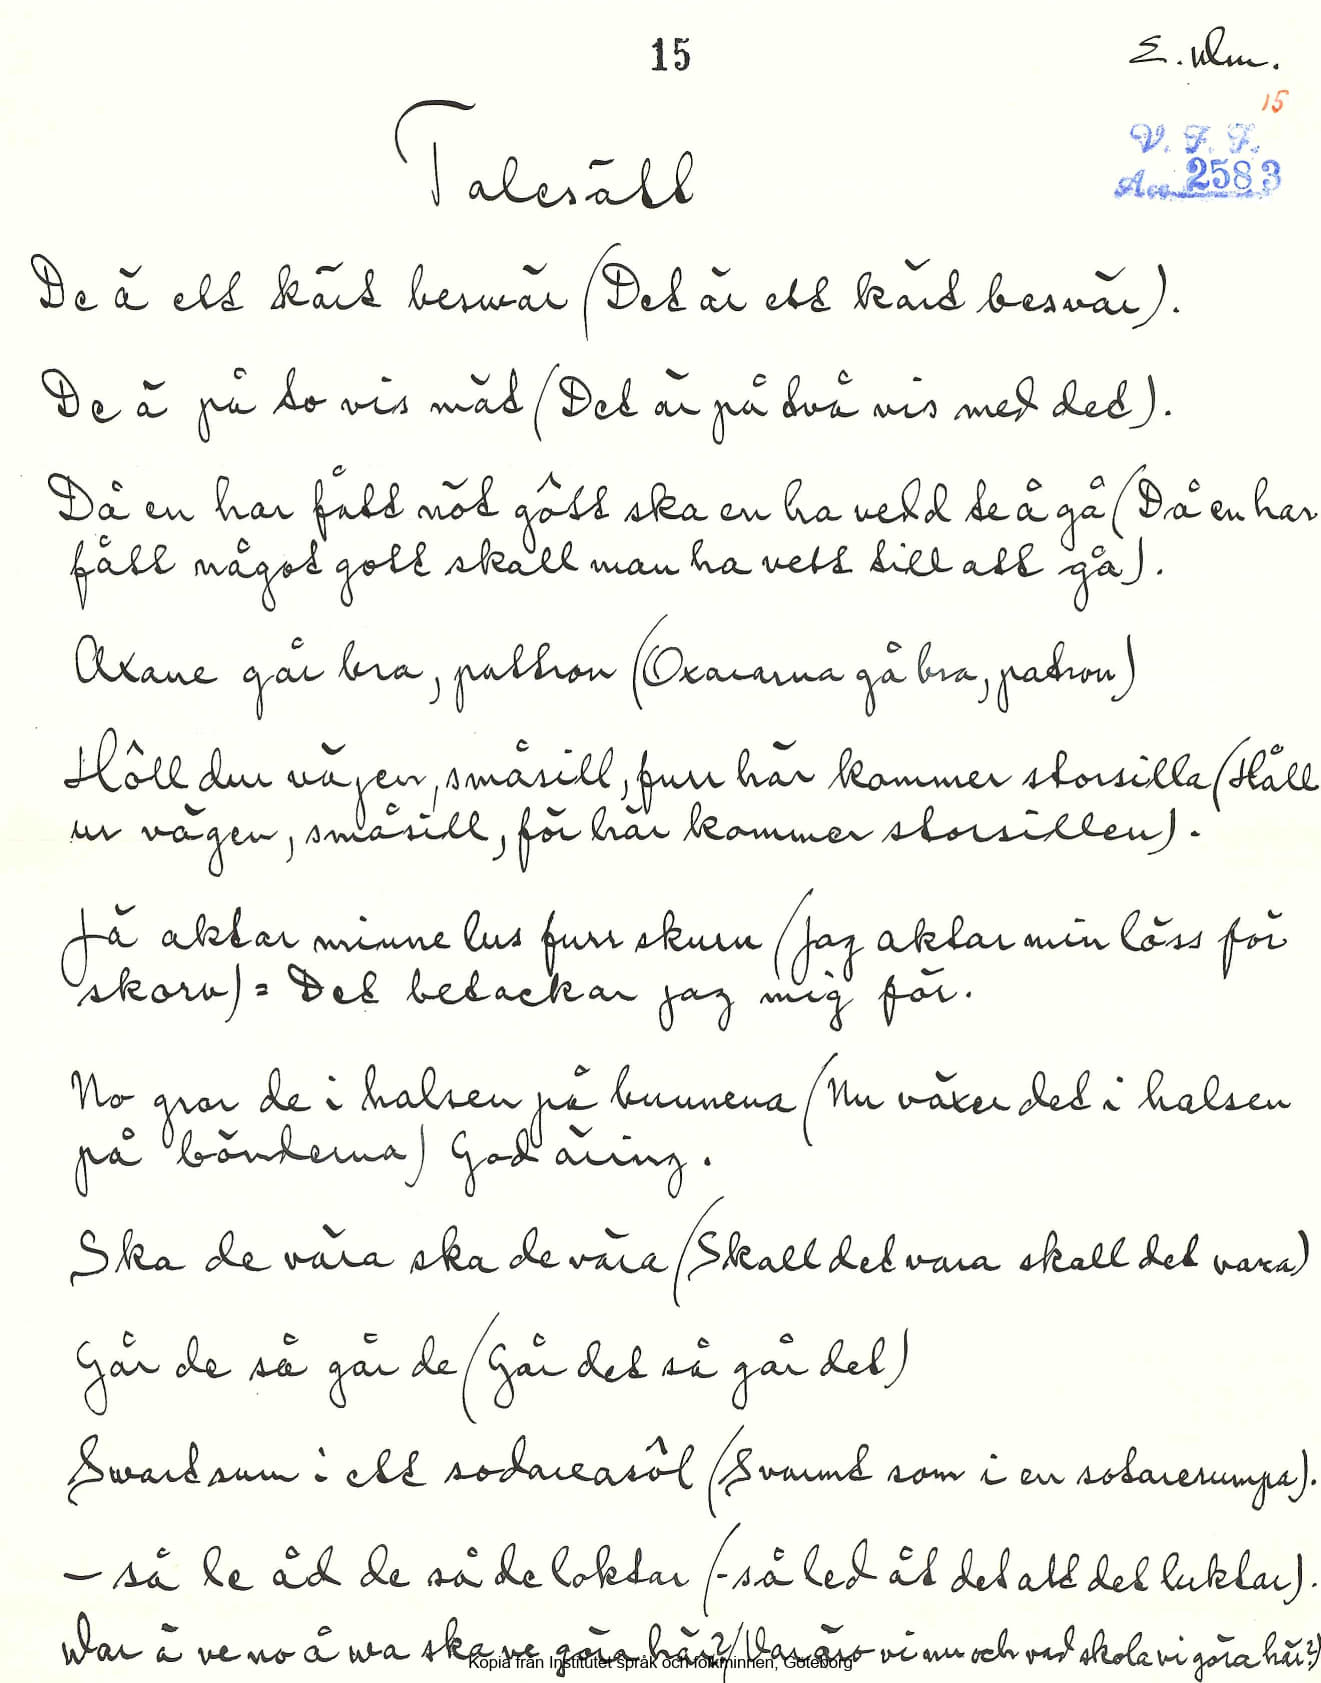 15
E. Ulm.
15
V. F. F.
Acc. 2583
Talesätt
De ä ett kärt beswär (Det är ett kärt besvär).
De ä på to vis mät (Det är på två vis med det).
Då en har fått nöt gôtt ska en ha vetd te å gå (Då en har
fått något gott skall man ha vett till att gå).
Oxane går bra, pattron (Oxararna gå bra, patron)
Hôll dur väjen, småsill, furr här kommer storsilla (Håll
ur vägen, småsill, för här kommer storsillen).
Jä aktar minne lus furr skurv (Jag aktar min löss för
skorv) = Det betackar jag mig för.
No gror de i halsen på bunnena (Nu växer det i halsen
på bönderna) God äring.
Ska de våra ska de våra (Skall det vara skall det vara)
Går de så går de (Går det så går det)
Swart sum i ett sodareasôl (Svart som i en sotarerumpa).
– så le åd de så de loktar (- så led åt det att det luktar).
War ä ve no å wa ska ve göra här? (Var äro vi nu och vad skola vi göra här?)
Kopia från Institutet språk och folkminnen, Göteborg